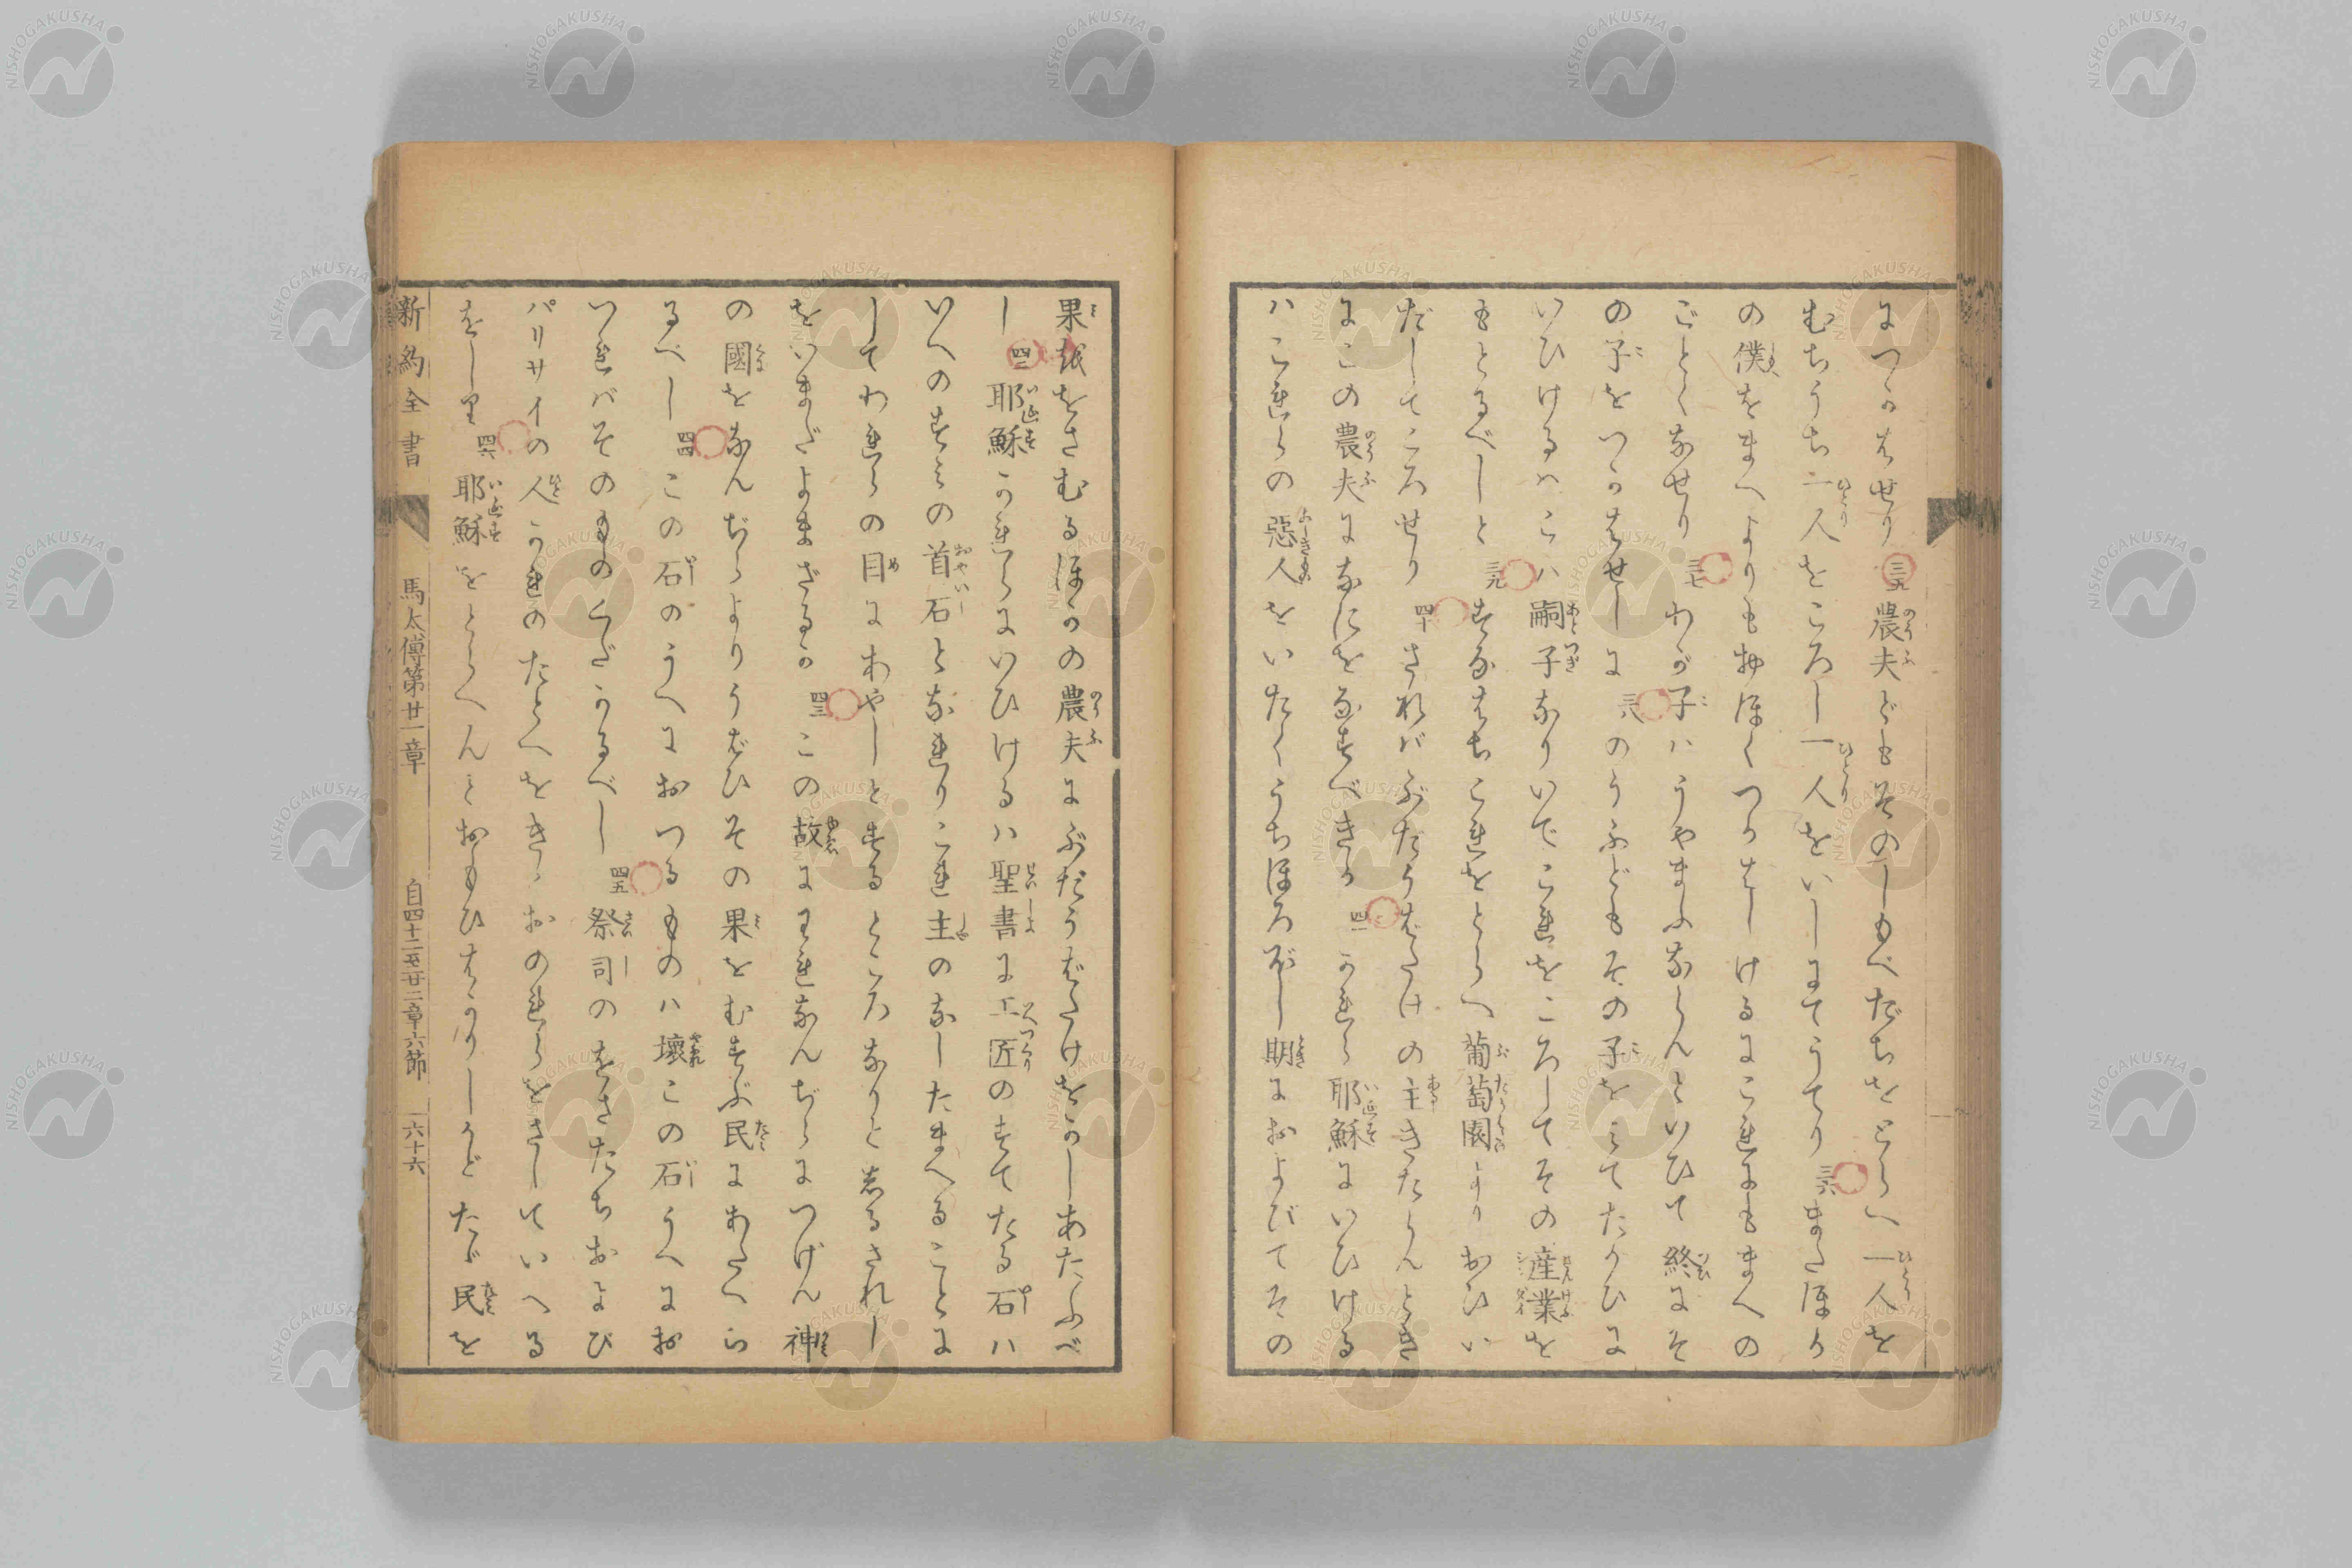 につかはせり 三五 農夫どもそのしもべだちをとらへ一人を
むちうち一人をころし一人をいしにてうてり 三六 またほか
の僕をまへよりもおほくつかはしけるにこれにもまへの
ごとくなせり 三七 わが子ハうやまふならんといひて終にそ
の子をつかはせしに 三八 のうふどもその子をみてたがひに
いひけるハこハ嗣子なりいでこれをころしてその産業を
もとるべしと 三九 すなはちこれをとらへ葡萄園よりおひい
だしてころせり 四十 されバぶだうばたけの主きたらんとき
にこの農夫になにをなすべきか 四一 かれら耶穌にいひける
ハこれらの惡人をいたくうちほろぼし期におよびてその
果をおさむるほかの農夫にぶだうばたけをかしあたふべ
し 四二 耶穌かれらにいひけるハ聖書に工匠のすてたる石ハ
いへのすみの首石となれりこれ主のなしたまへることに
してわれらの目にあやしとするところなりとしるされし
をいまだよまざるか 四三 この故にわれなんぢらにつげん神
の國をなんぢらよりうばひその果をむすぶ民にあたへら
るべし 四四 この石のうへにおつるものハ壞この石うへにお
つれバそのものくだかるべし 四五 祭司のをさたちおよび
パリサイの人かれのたとへをきゝおのれらをさしていへる
をしり 四六 耶穌をとらへんとおもひはかりしかどたゞ民を
新約全書 馬太傳第廿一章 自四十二至廿二章六節 六十六